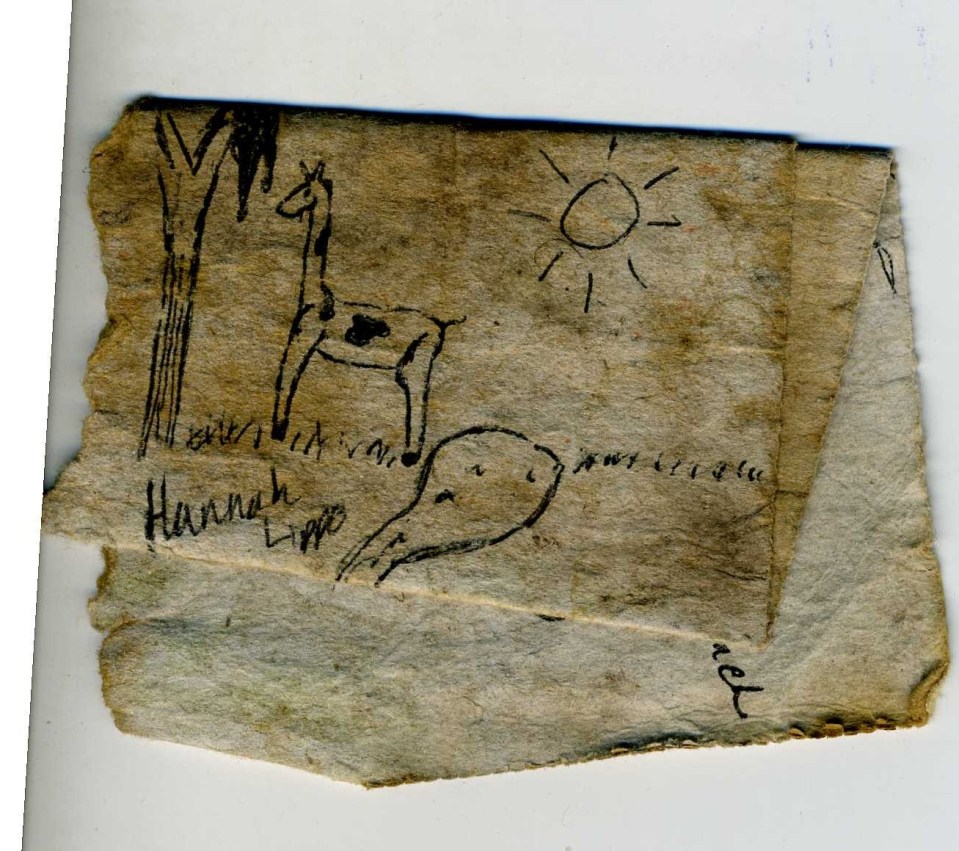 Hannah
Lippo